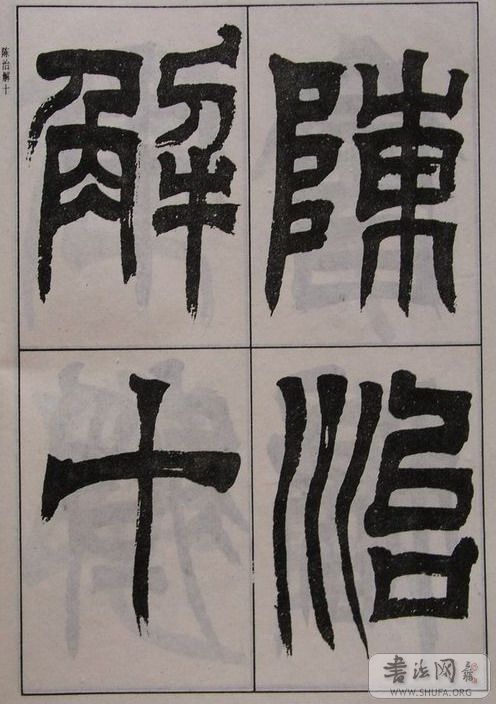 陳治
解十
陈治解十
書法网
WWW.SHUFA.ORG